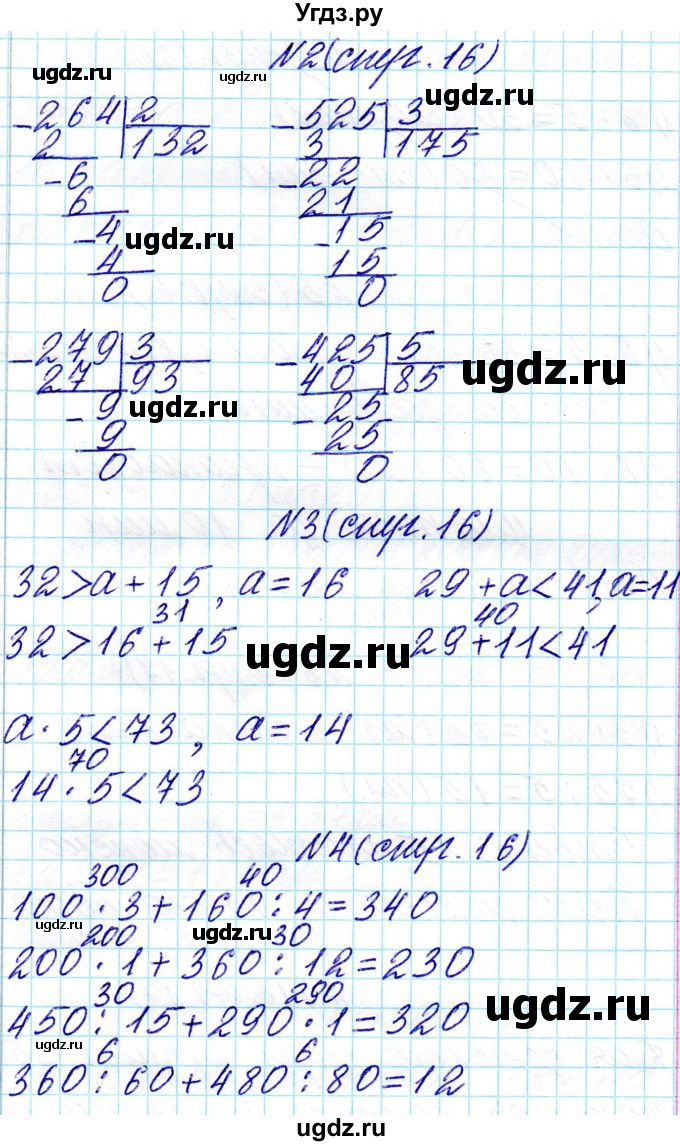 Угдз.ру
№2(стуг.16)
ugdz.ru ugdz.ru ugdz.ru
-264|2 -525|3
2 132 3 175
-6 -22
6 21
-4 ugdz.ru -15
4 15
0 0
-279|3 -425|5
27 93 40 85 ugdz.ru
-9 ugdz.ru -25
9 25
0 0
№3(стуг.16)
32>а+15, а=16 29+а<41, а=11
31 40
32>16+15 ugdz.ru 29+11<41
а·5<73, а=14
70
14·5<73
№4(стуг.16)
300 40
100·3+160:4=340
ugdz.ru ugdz.ru
200 30
200·1+360:12=230
30 290 ugdz.ru
450:15+290·1=320
ugdz.ru
6 6
360:60+480:80=12
ugdz.ru ugdz.ru